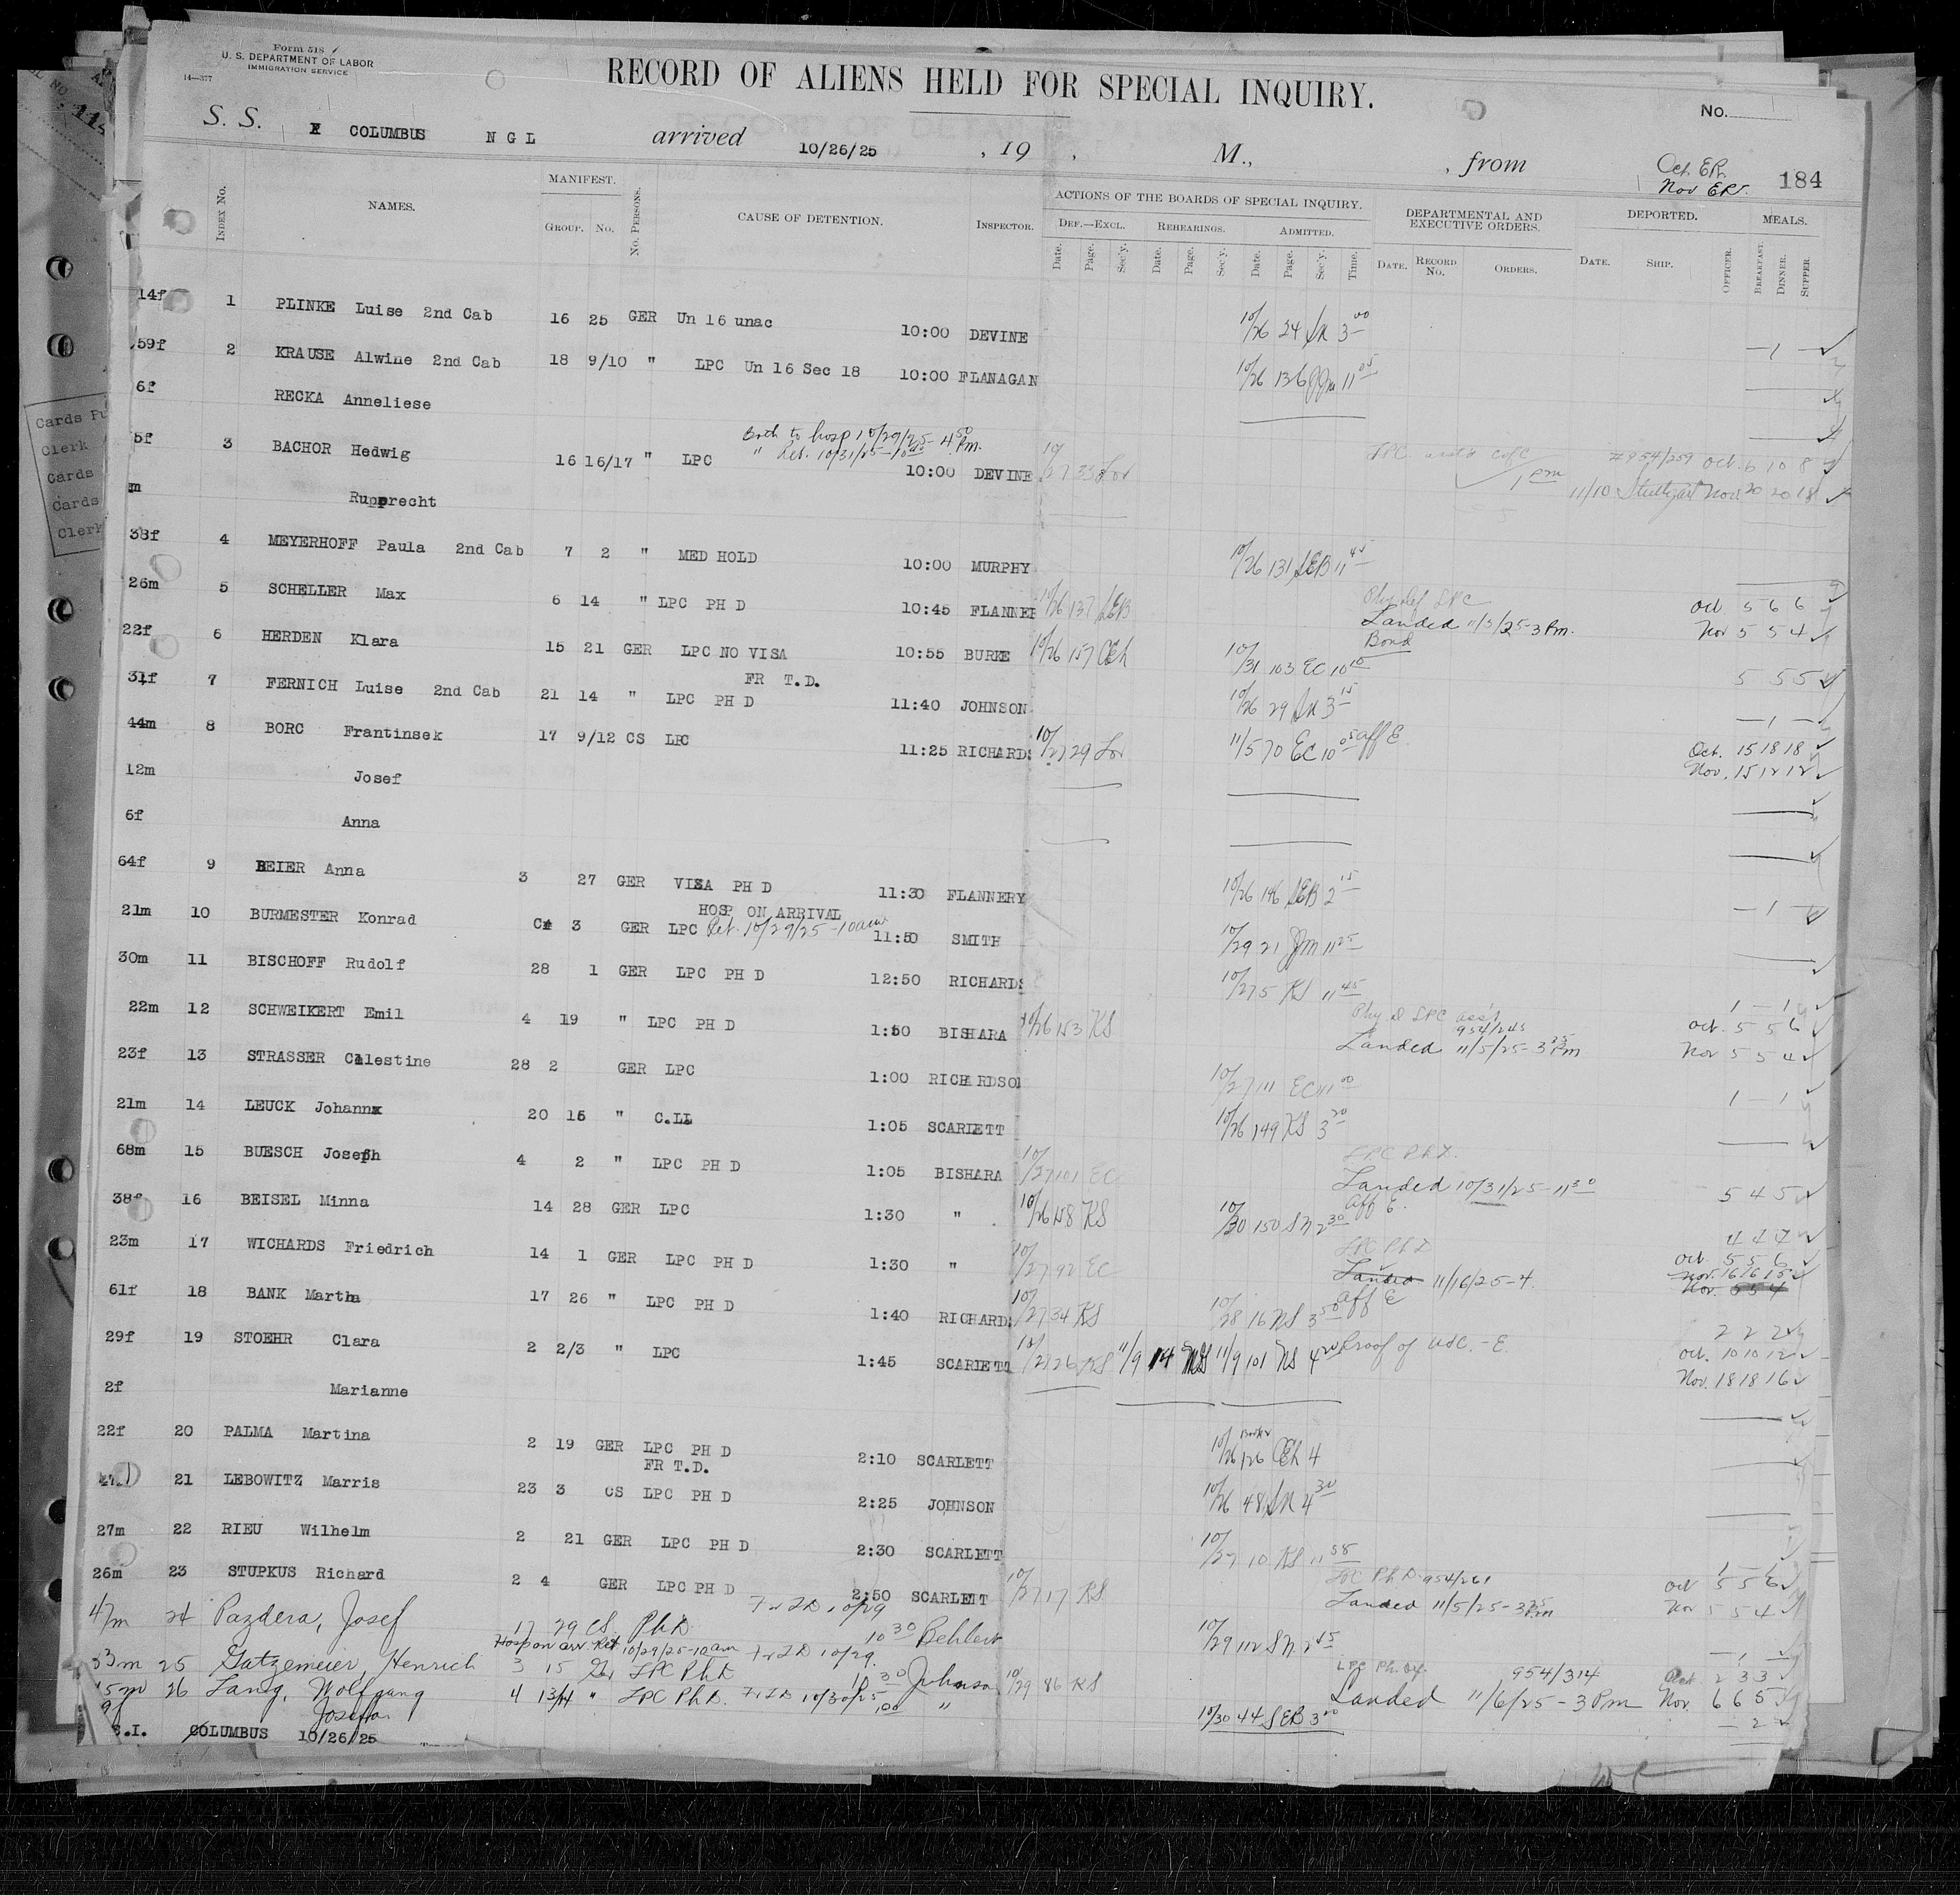 Form 518
U. S. DEPARTMENT OF LABOR
IMMIGRATION SERVICE
14—377
RECORD OF ALIENS HELD FOR SPECIAL INQUIRY.
No.
S. S. COLUMBUS N G L arrived 10/26/25 , 19 , M., , from
Oct. ER.
Nov ER.
184
INDEX No. NAMES. MANIFEST. GROUP. NO. NO. PERSONS. CAUSE OF DETENTION. INSPECTOR. ACTIONS OF THE BOARDS OF SPECIAL INQUIRY. DEPARTMENTAL AND EXECUTIVE ORDERS. DEPORTED. MEALS.
DEF.—EXCL. REHEARINGS. ADMITTED.
Date. Page. Sec'y. Date. Page. Sec'y. Date. Page. Sec'y. Time. DATE. RECORD No. ORDERS. DATE. SHIP. OFFICER. BREAKFAST. DINNER. SUPPER
14f 1 PLINKE Luise 2nd Cab 16 25 GER Un 16 unac 10:00 DEVINE 10/26 24 SN 3 00 — 1 —
59f 2 KRAUSE Alwine 2nd Cab 18 9/10 " LPC Un 16 Sec 18 10:00 FLANAGAN 10/26 136 JM 11 05
6f RECKA Anneliese
Both to hosp 10/29/25 - 4 50 Pm.
" Ret. 10/31/25
5f 3 BACHOR Hedwig 16 16/17 " LPC 10:00 DEVINE 10/27 33 Lor LPC #954/259 Oct. 6 10 8
1 pm 11/10 Stuttgart Nov 20 20 18
m Rupprecht
38f 4 MEYERHOFF Paula 2nd Cab 7 2 " MED HOLD 10:00 MURPHY 10/26 131 SEB 11 45
26m 5 SCHELLER Max 6 14 " LPC PH D 10:45 FLANNER 10/26 137 SEB Phy def LPC Oct 5 6 6
Landed 11/5/25 - 3 Pm. Nov 5 5 4
Bond
22f 6 HERDEN Klara 15 21 GER LPC NO VISA 10:55 BURKE 10/26 157 CEh 10/31 103 EC 10 10 5 5 5
FR T.D.
31f 7 FERNICH Luise 2nd Cab 21 14 " LPC PH D 11:40 JOHNSON 10/26 29 SN 3 15 — 1 —
44m 8 BORC Frantinsek 17 9/12 CS LPC 11:25 RICHARDS 10/27 29 Lor 11/5 70 EC 10 05 aff E. Oct. 15 18 18
Nov. 15 12 12
12m Josef
6f Anna
64f 9 BEIER Anna 3 27 GER VISA PH D 11:30 FLANNERY 10/26 146 SEB 2 15 — 1 —
HOSP ON ARRIVAL
21m 10 BURMESTER Konrad 3 GER LPC Ret. 10/29/25 - 10 am 11:50 SMITH 10/29 21 JM 11 25
30m 11 BISCHOFF Rudolf 28 1 GER LPC PH D 12:50 RICHARDS 10/27 5 KS 11 45 1 — 1
22m 12 SCHWEIKERT Emil 4 19 " LPC PH D 1:50 BISHARA 10/26 153 KS Phy d LPC 954/245 Oct. 5 5 6
Landed 11/5/25 - 3 25 Pm Nov 5 5 4
23f 13 STRASSER Celestine 28 2 GER LPC 1:00 RICHARDSON 10/27 111 EC 11 00 1 — 1
21m 14 LEUCK Johann 20 16 " C.LL 1:05 SCARLETT 10/26 149 KS 3 20
68m 15 BUESCH Joseph 4 2 " LPC PH D 1:05 BISHARA 10/27 101 EC LPC Ph D.
Landed 10/31/25 - 11 30 5 4 5
38f 16 BEISEL Minna 14 28 GER LPC 1:30 " 10/26 158 KS 10/30 150 SN 2 30 aff E. 4 4 4
23m 17 WICHARDS Friedrich 14 1 GER LPC PH D 1:30 " 10/27 92 EC LPC Ph D Oct 5 5 6
Landed 11/16/25 - 4. Nov. 16 16 15
Nov. 5 5 4
61f 18 BANK Martha 17 26 " LPC PH D 1:40 RICHARDS 10/27 34 KS 10/28 16 NS 3 50 aff E 2 2 2
29f 19 STOEHR Clara 2 2/3 " LPC 1:45 SCARLETT 10/27 26 KS 11/9 14 MS 11/9 101 NS 4 20 Proof of - E. Oct. 10 10 12
Nov. 18 18 16
2f Marianne
22f 20 PALMA Martina 2 19 GER LPC PH D 2:10 SCARLETT 10/26 126 CEh 4
FR T.D.
21 LEBOWITZ Marris 23 3 CS LPC PH D 2:25 JOHNSON 10/26 48 SN 4 30
27m 22 RIEU Wilhelm 2 21 GER LPC PH D 2:30 SCARLETT 10/27 10 KS 11 58 1 — 1
26m 23 STUPKUS Richard 2 4 GER LPC PH D 2:50 SCARLETT 10/27 17 KS LPC Ph D. 954/261 Oct 5 5 6
Landed 11/5/25 - 3 25 Pm Nov 5 5 4
47m 24 Pazdera, Josef 17 29 CS. Ph D. Fr TD. 10/29 10 30 Behlert 10/29 112 SN. 2 45 — 1 —
Hosp on arr. Ret 10/29/25 - 10 am Fr TD 10/29.
33m 25 Gatzemeier, Henrich 3 15 Ger LPC Ph D 10 30 Johnson 10/29 86 KS LPC Ph. 954/314 Oct 2 3 3
Landed 11/6/25 - 3 Pm Nov. 6 6 5
15m 26 Lang, Wolfgang 4 13/14 " LPC Ph D. Fr TD 10/30/25 " 10/30 44 SEB 3 00 — 2 —
9f Josefa
S.I. COLUMBUS 10/26/25
Cards
Clerk
Cards
Cards
Clerk